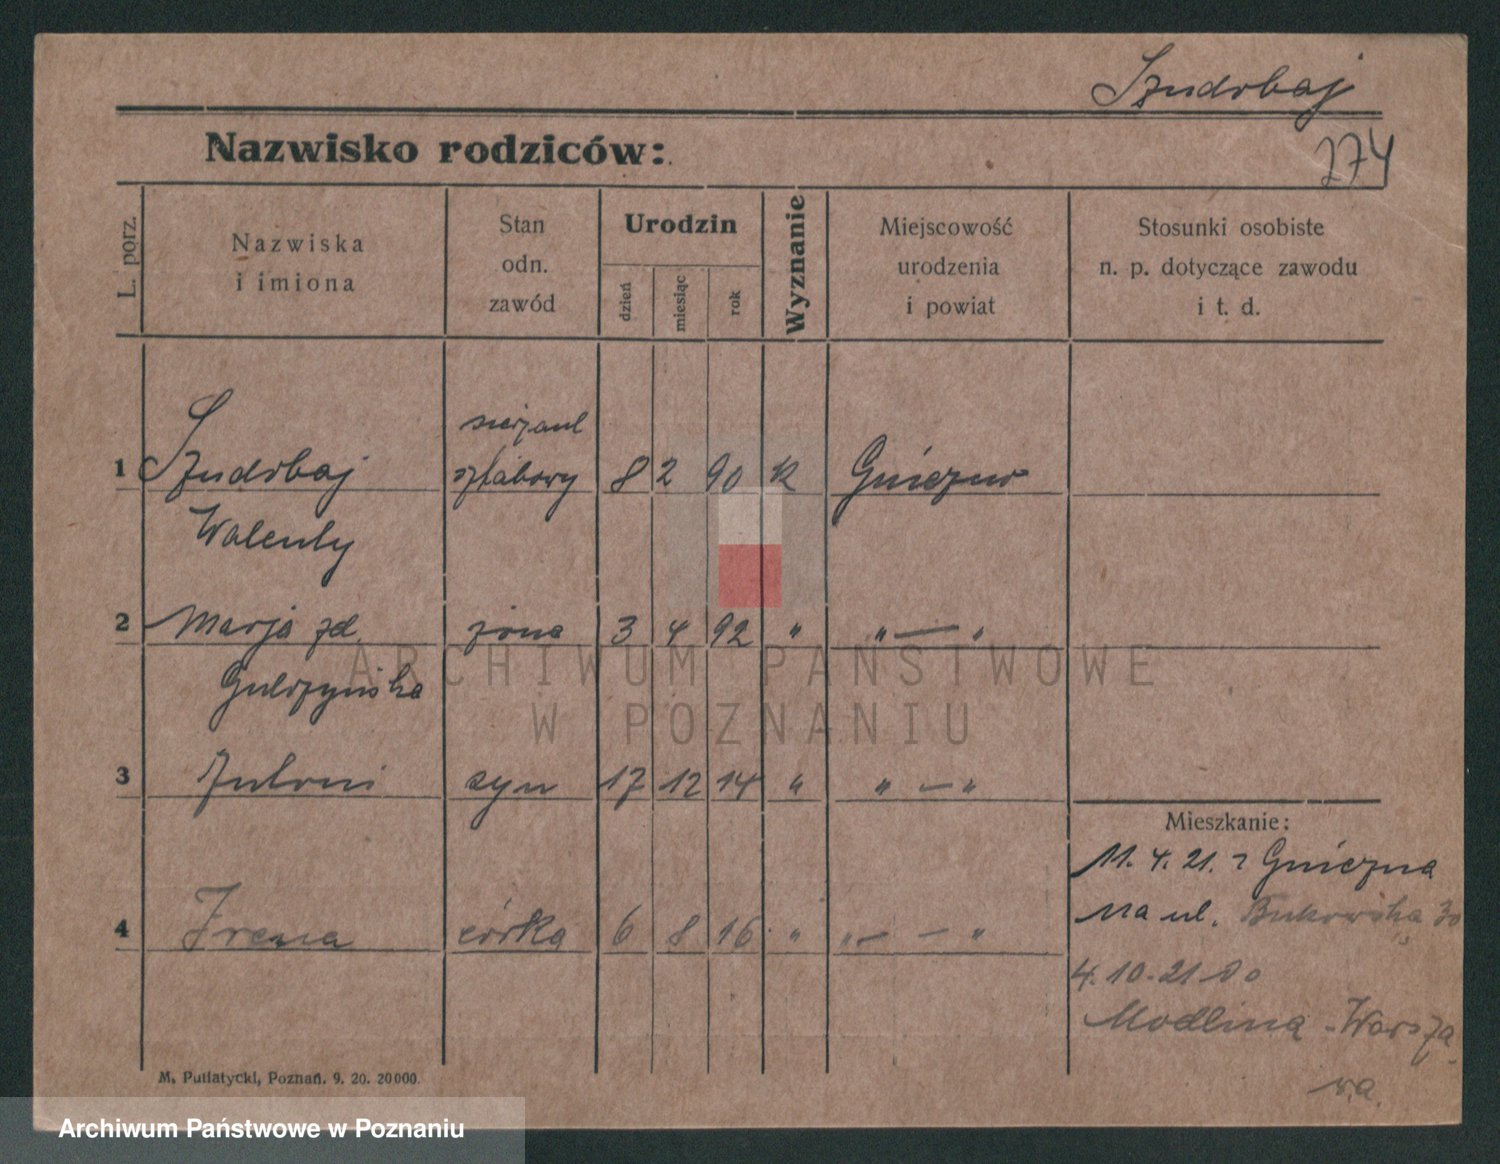 Szudrbaj
Nazwisko rodziców:
274
L. porz.
Nazwiska
i imiona
Stan
odn.
zawód
Urodzin
dzień
miesiąc
rok
Wyznanie
Miejscowość
urodzenia
i powiat
Stosunki osobiste
n. p. dotyczące zawodu
i t. d.
sierżant
1 Szudrbaj sztabowy 8 2 90 k Gniezno
Walenty
2 Marja zd. żona 3 4 92 " " — "
ARCHIWUM PAŃSTWOWE
W POZNANIU
3 Antoni syn 17 12 14 " " — "
Mieszkanie:
11. 4. 21. z Gniezna
na ul. Bukowska 30
4 Irena córka 6 8 16 " " — — "
4. 10. 21 do
Modlina - Warsza
wa.
M. Putiatycki, Poznań. 9. 20. 20000.
Archiwum Państwowe w Poznaniu